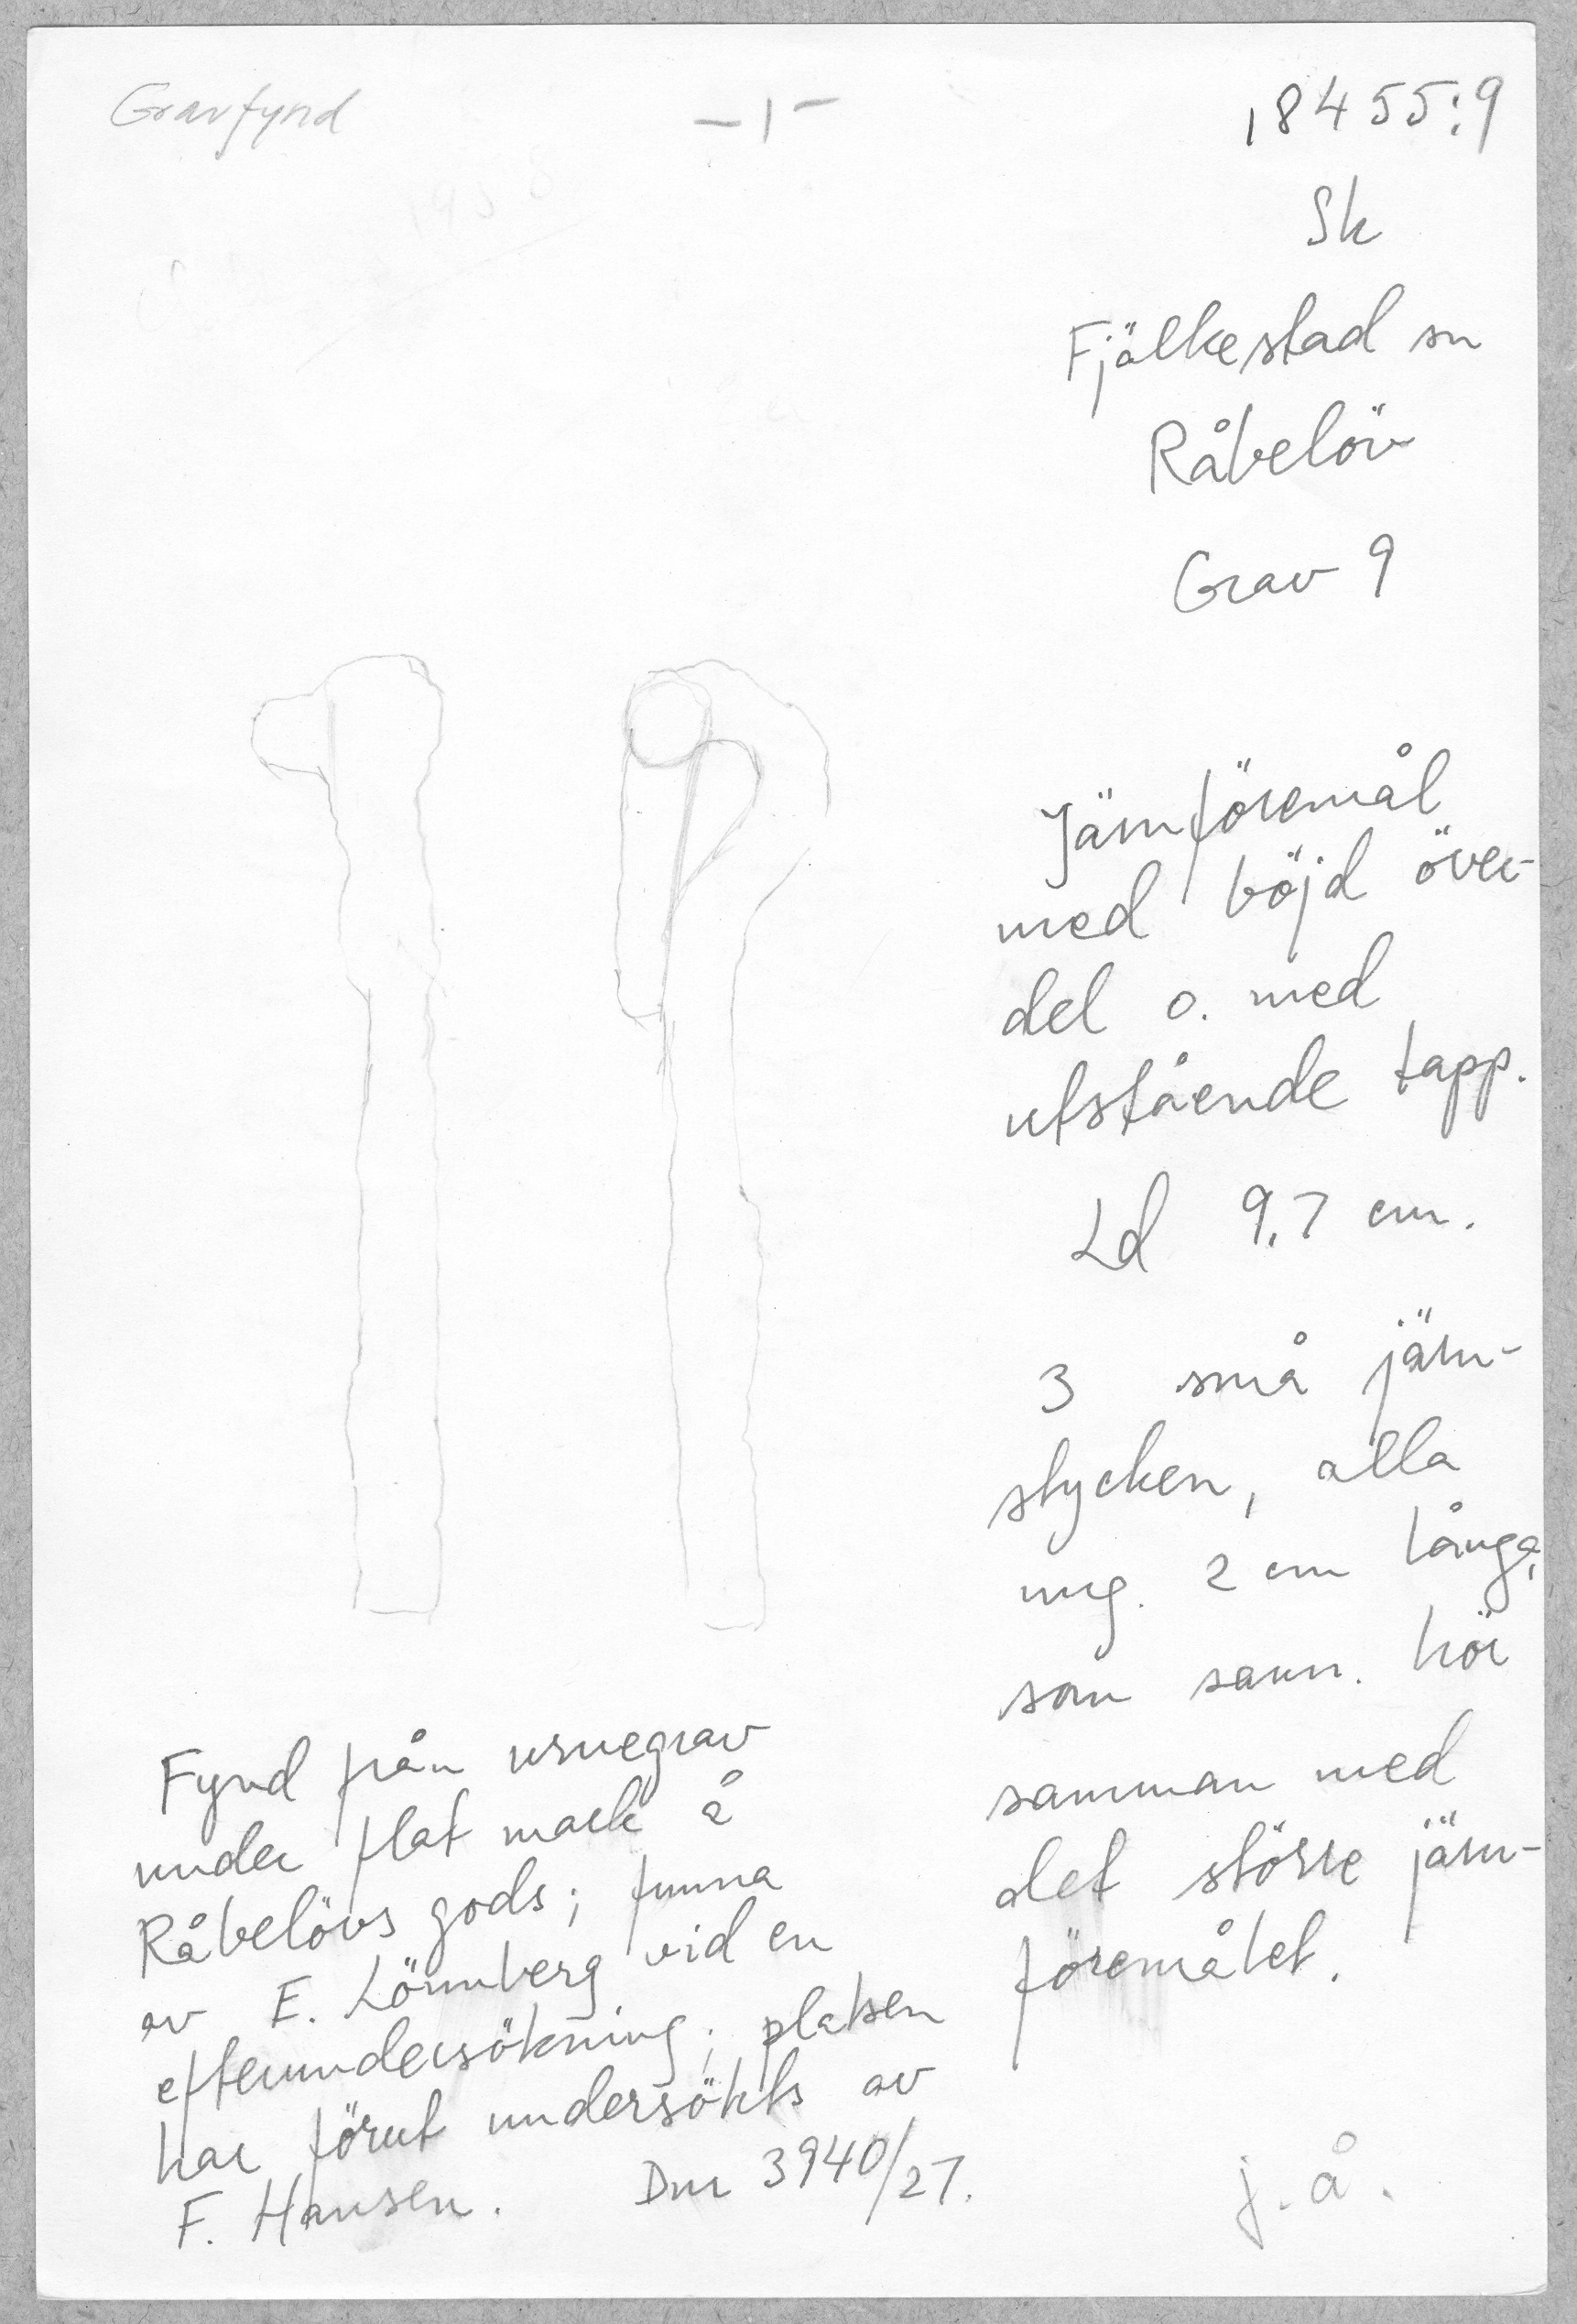 Gravfynd
- 1 -
18455:9
Sk
Fjälkestad sn
Råbelöv
Grav 9
Järnföremål
med böjd över-
del o. med
utstående tapp.
Ld 9,7 cm.
3 små järn-
stycken, alla
ung. 2 cm långa,
som sann. hör
samman med
det större järn-
föremålet.
Fynd från urnegrav
under flat mark å
Råbelövs gods; funna
av E. Lönnberg vid en
efterundersökning; platsen
har förut undersökts av
F. Hansen. Dnr 3940/27.
j. å.